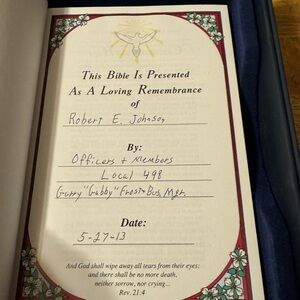 This Bible Is Presented
As A Loving Remembrance
of
Robert E. Johnson
By:
Officers + Members
Local 498
Garry "Gabby" Frost Bus. Mgr.
Date:
5-27-13
And God shall wipe away all tears from their eyes;
and there shall be no more death,
neither sorrow, nor crying...
Rev. 21:4